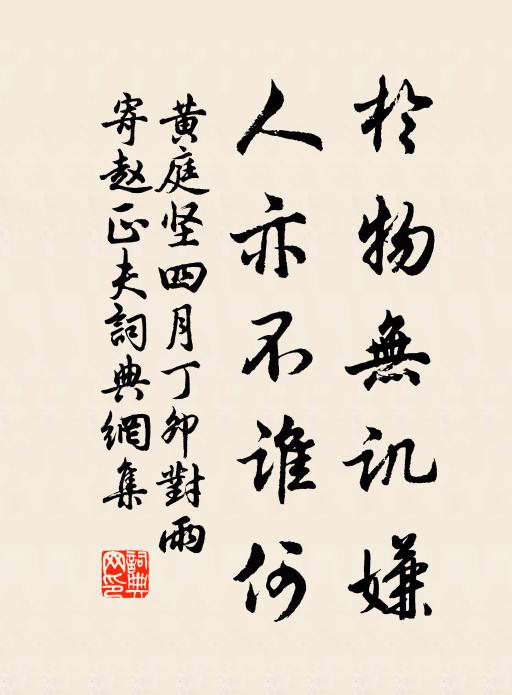 於物無讥嫌
人亦不誰何
黄庭坚四月丁卯對雨
寄赵正夫詞典網集
詞典
网印